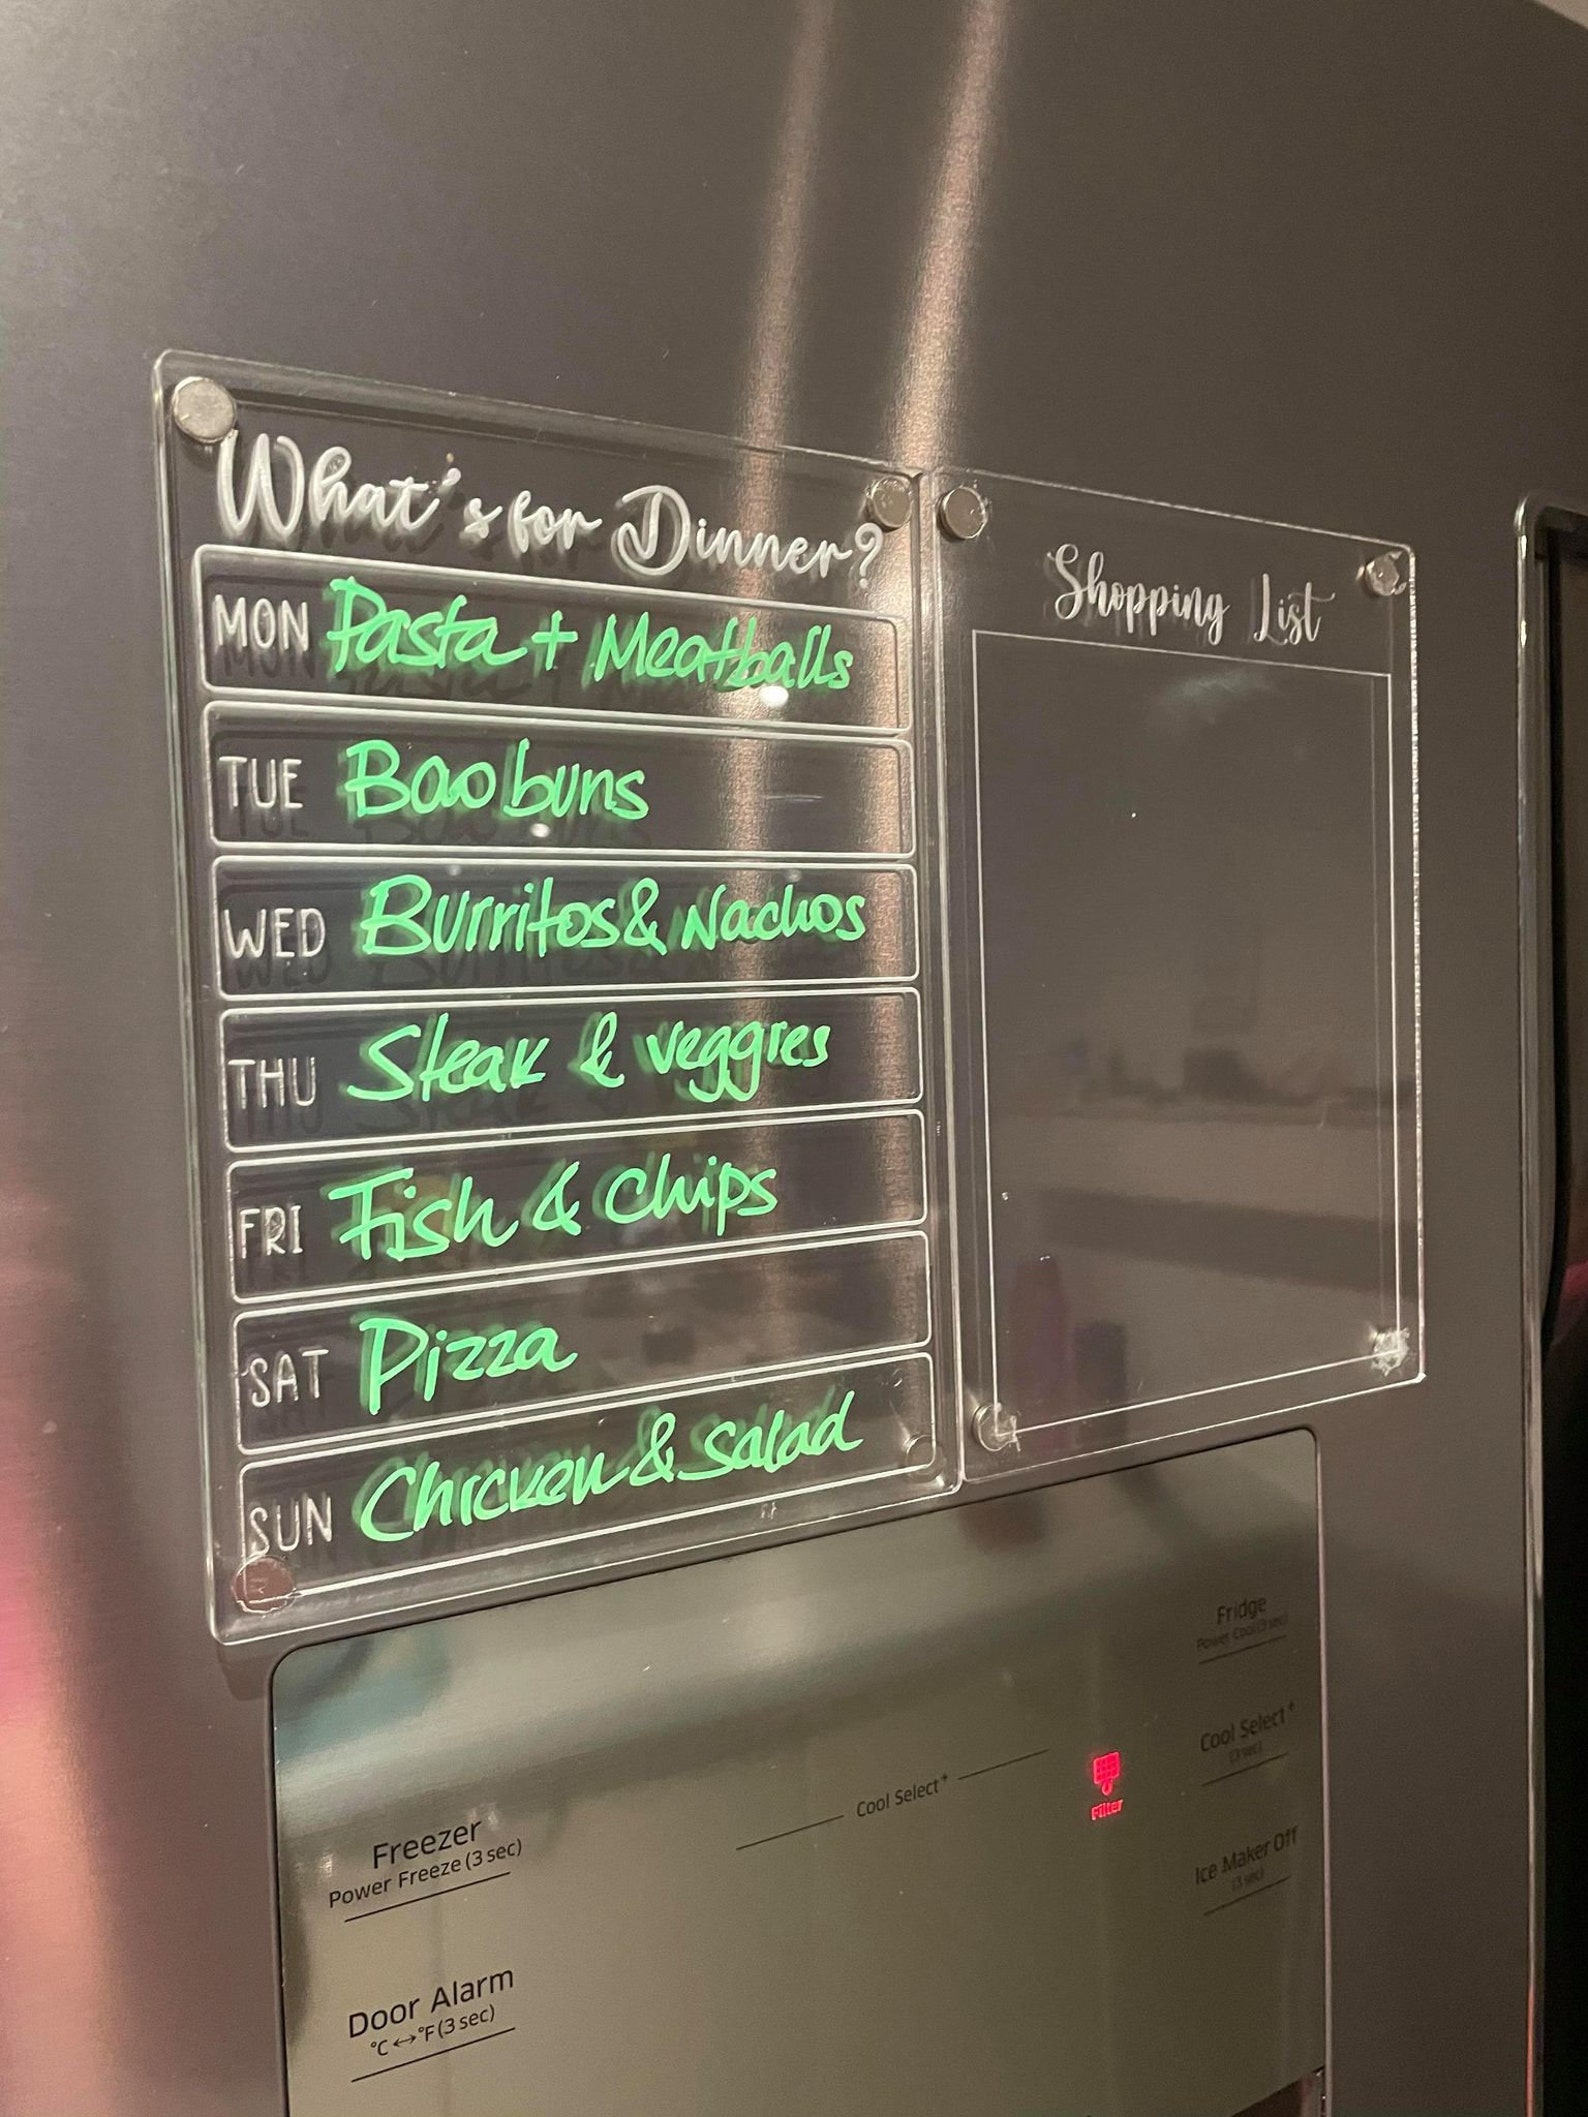 What's for Dinner?
MON Pasta + Meatballs
TUE Bao buns
WED Burritos & Nachos
THU Steak & veggies
FRI Fish & Chips
SAT Pizza
SUN Chicken & Salad
Shopping List
Freezer
Power Freeze (3 sec)
Door Alarm
°C ↔ °F (3 sec)
Cool Select+
Filter
Fridge
Power Cool (3 sec)
Cool Select+
(3 sec)
Ice Maker Off
(3 sec)